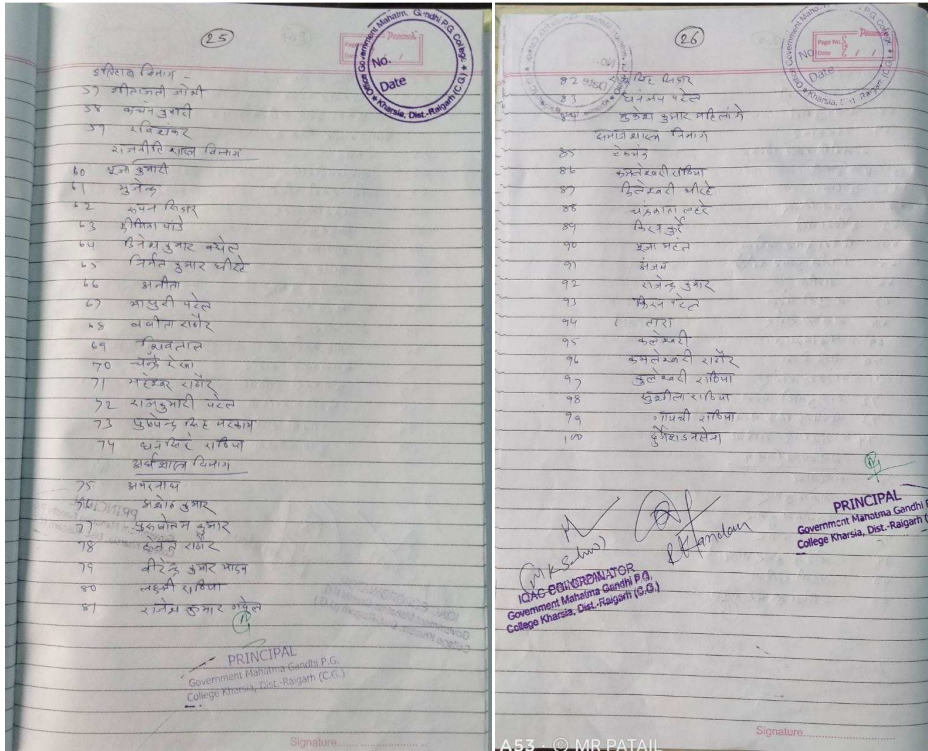 25
Page No.
Date
Government Mahatma Gandhi P.G. College ★ Kharsia, Dist.-Raigarh (C.G.) ★
No.
Date
इतिहास विभाग -
57
58 कंचन कुमारी
59 रविशंकर
राजनीति शास्त्र विभाग
60 पूजा कुमारी
61 मुनेन्द्र
62 सिदार
63 पांडे
64 दिनेश कुमार बघेल
65 निर्मल कुमार चौरहे
66 अनीता
67 माधुरी पटेल
68 बबीता राठौर
69 शिवलाल
70 चन्द्र रेखा
71 महेश्वर राठौर
72 राजकुमारी पटेल
73 पुष्पेन्द्र सिंह मरकाम
74 धनसिंह राठिया
अर्थशास्त्र विभाग
75 अमरनाथ
76 अशोक कुमार
77 पुरुषोत्तम कुमार
78 राठौर
79 वीरेन्द्र कुमार यादव
80 लक्ष्मी राठिया
81 राजेश कुमार
PRINCIPAL
Government Mahatma Gandhi P.G.
College Kharsia, Dist.-Raigarh (C.G.)
Signature
26
Page No.
Government Mahatma Gandhi P.G. College ★ Kharsia, Dist. Raigarh (C.G.)
No
Date
82 सिंह सिदार
83 धनंजय पटेल
84 मुकेश कुमार महिलांगे
समाजशास्त्र विभाग
85 टेकचंद
86 कमलेश्वरी राठिया
87
88 चंद्रकांता लहरे
89 किरन कुर्रे
90 पूजा महंत
91 संजय
92 राजेन्द्र कुमार
93 किरन पटेल
94 तारा
95 कलेश्वरी
96 कमलेश्वरी राठौर
97 कुलेश्वरी राठिया
98 सुशीला राठिया
99 गायत्री राठिया
100
(M K Sahu)
IQAC COORDINATOR
Government Mahatma Gandhi P.G.
College Kharsia, Dist.-Raigarh (C.G.)
PRINCIPAL
Government Mahatma Gandhi P
College Kharsia, Dist.-Raigarh (C.G
Signature
A53 · © MR PATAIL